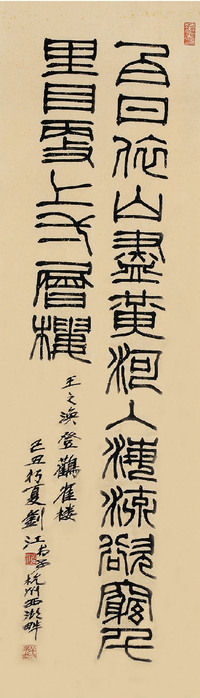 白日依山盡黃河入海流欲窮千
里目更上一層樓
王之渙登鸛雀樓
己丑初夏劉江書於杭州西湖畔